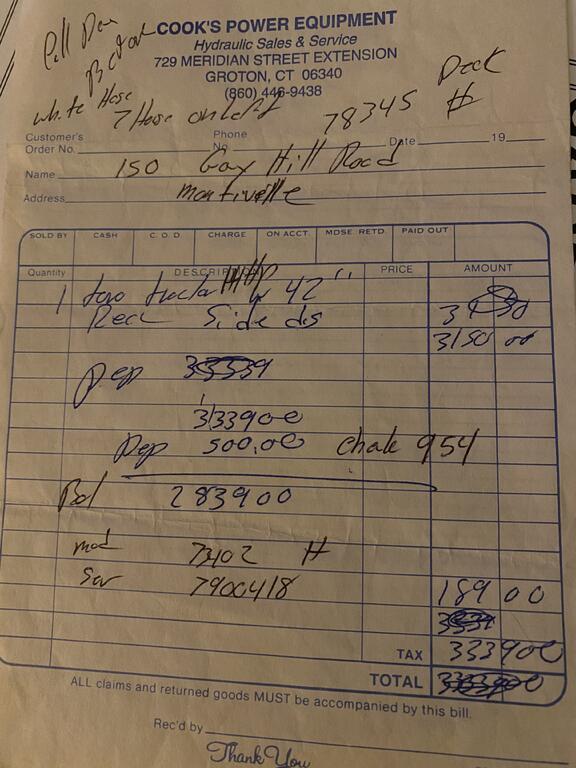 Call
COOK'S POWER EQUIPMENT
Hydraulic Sales & Service
729 MERIDIAN STREET EXTENSION
GROTON, CT 06340
(860) 446-9438
Deck
#
78345
White Hose
7 Hose on Left
Customer's Order No. Phone No. Date 19
Name 150 Gay Hill Road
Address Montivelle
SOLD BY CASH C. O. D. CHARGE ON ACCT. MDSE. RETD. PAID OUT
Quantity DESCRIPTION PRICE AMOUNT
1 toro tractor HP w 42"
Rect Side dis
3150 00
Dep
3339 00
Dep 500.00 954
Bal 2839 00
mod 73402 #
Ser 7900418
189 00
TAX 3339 00
TOTAL
ALL claims and returned goods MUST be accompanied by this bill.
Rec'd by
Thank You